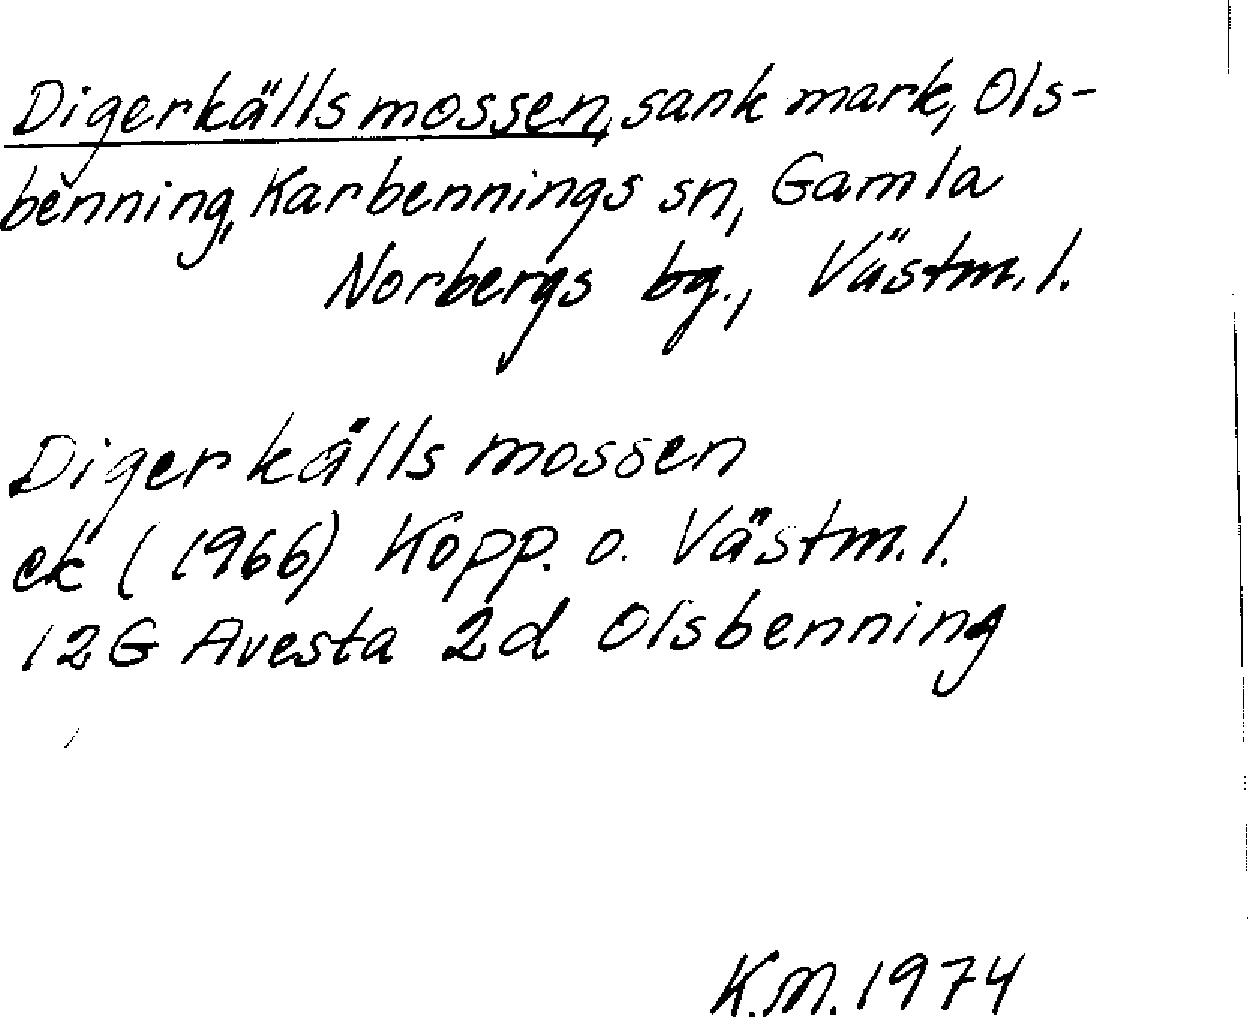 Digerkällsmossen, sank mark, Ols-
benning, Karbennings sn, Gamla
Norbergs bg., Västm. l.
Digerkällsmossen
ek (1966) Kopp. o. Västm. l.
12G Avesta 2d Olsbenning
K.M. 1974